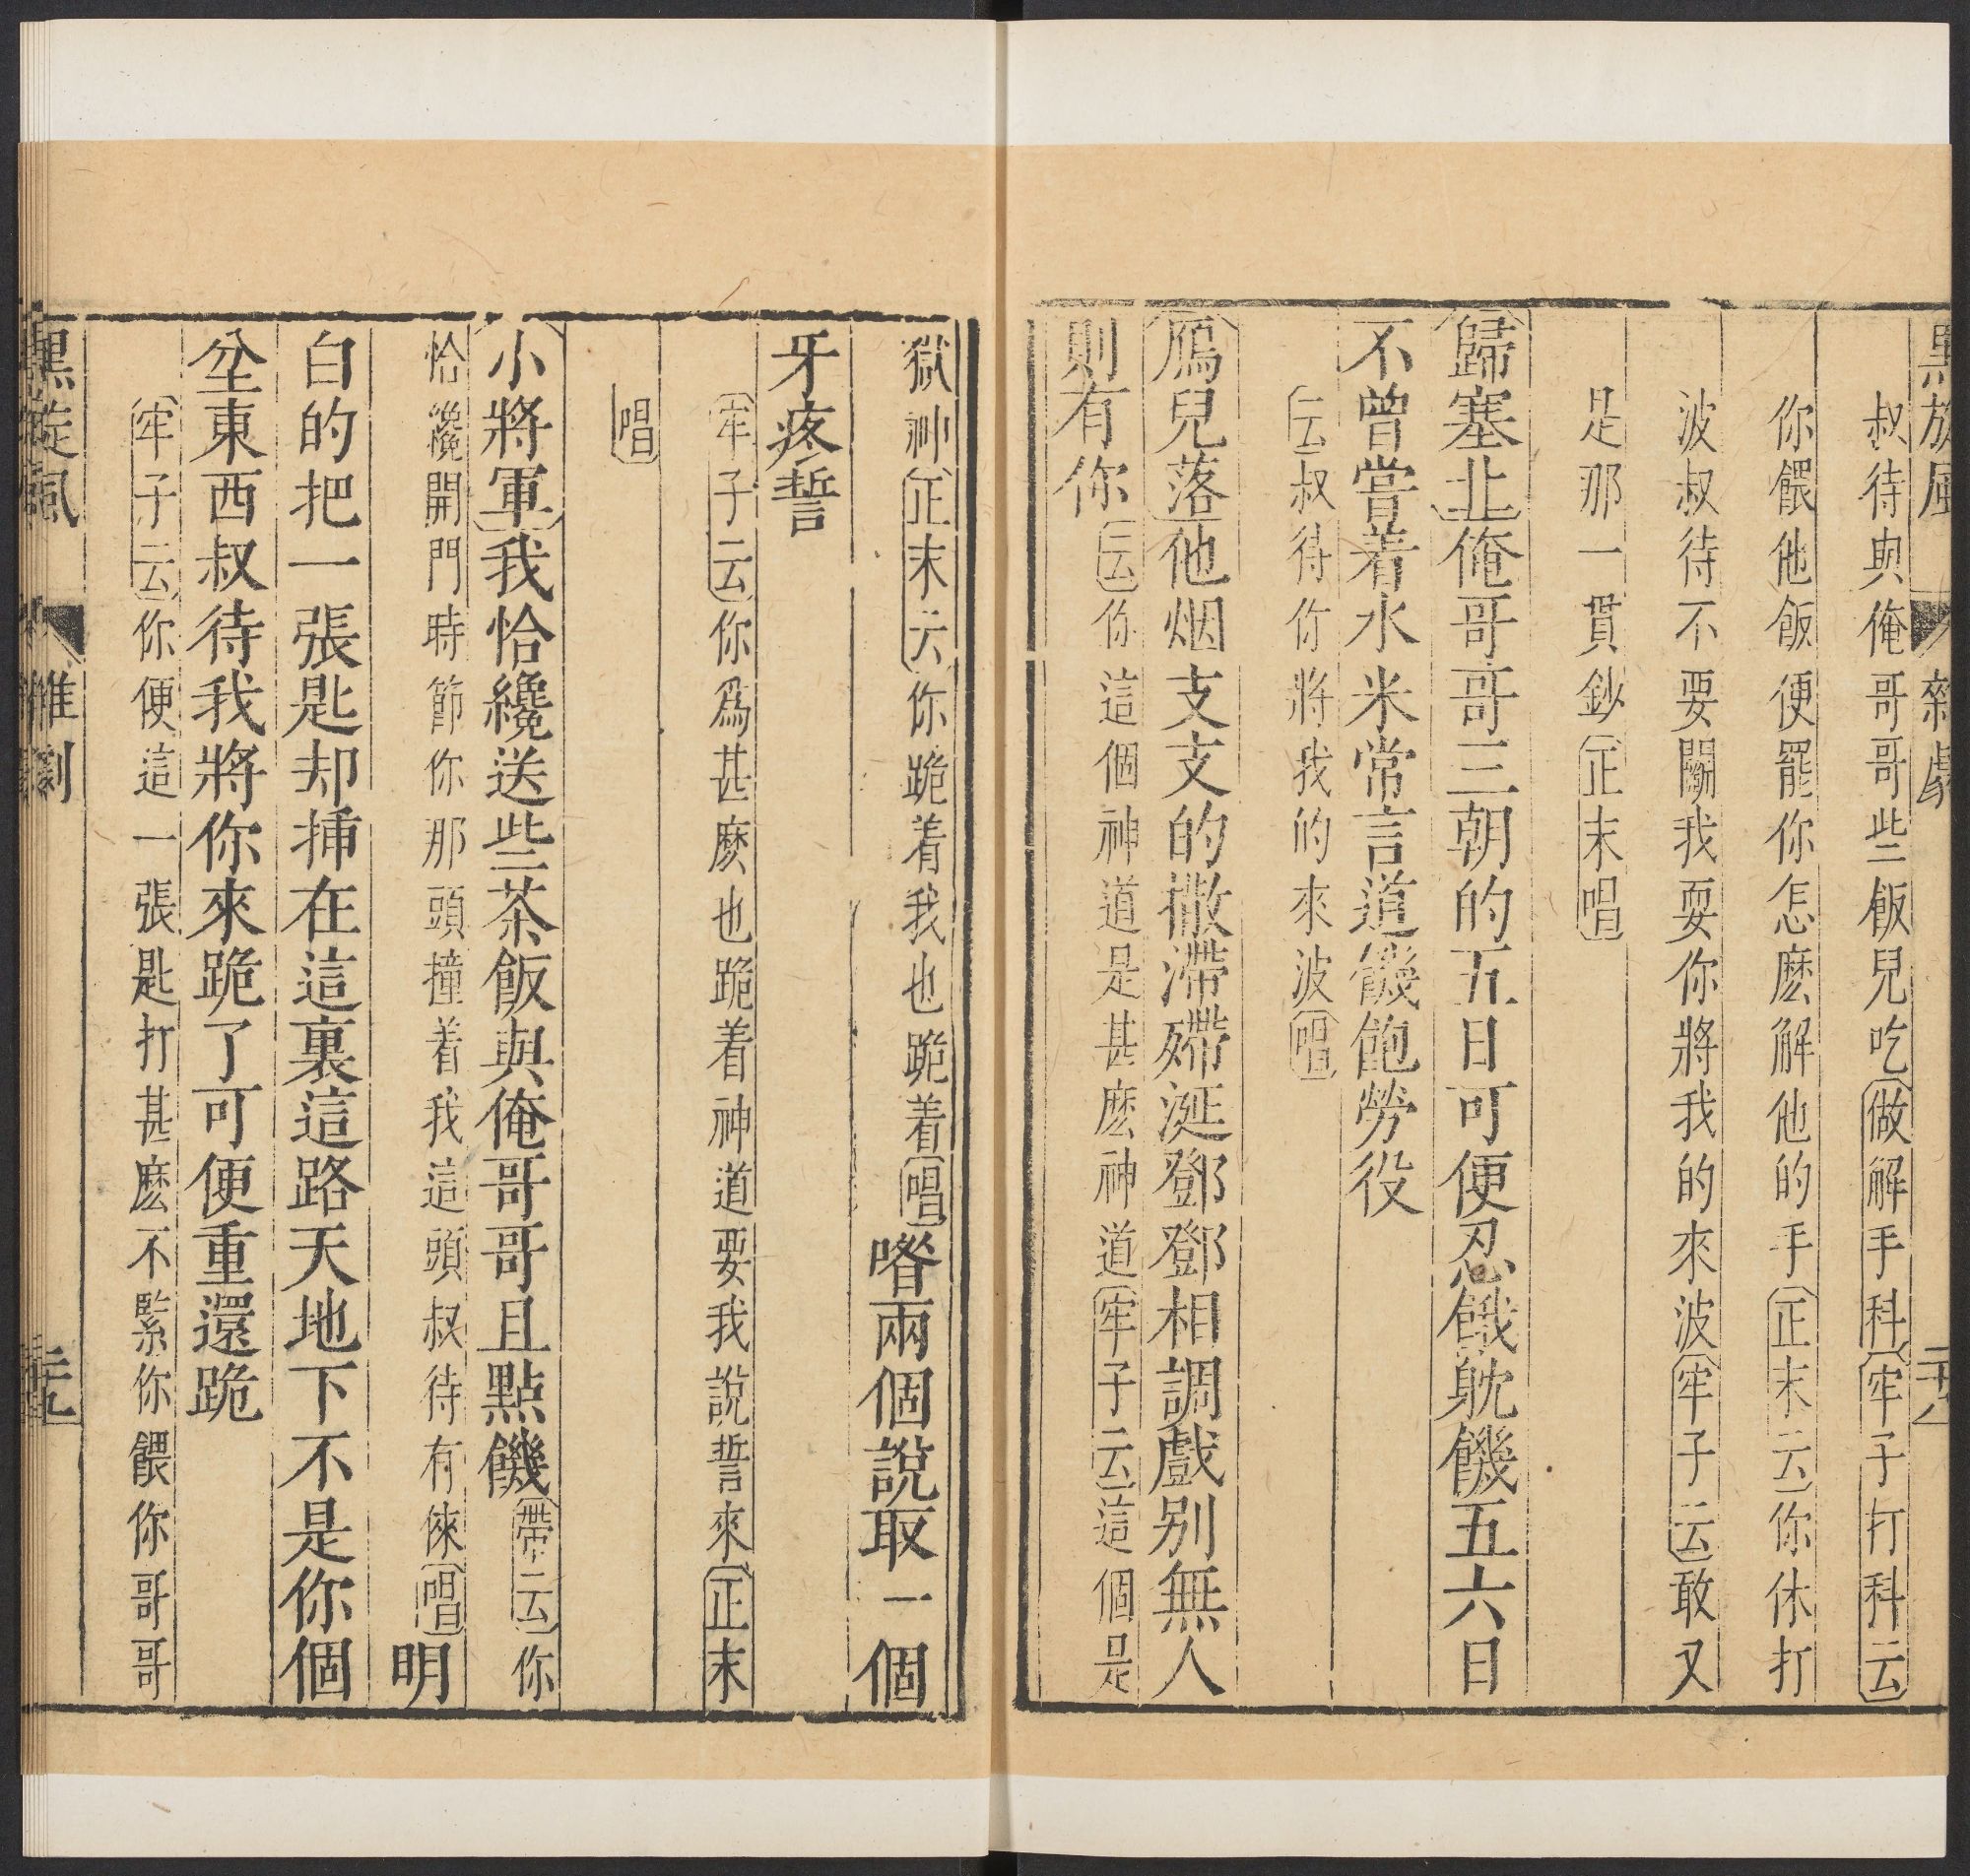 黑旋風 雜劇 二十八
叔待與俺哥哥些飯兒吃做解手科牢子打科云
你餵他飯便罷你怎麽解他的手正末云你休打
波叔待不要鬬我耍你將我的來波牢子云敢又
是那一貫鈔正末唱
歸塞北俺哥哥三朝的五日可便忍餓躭饑五六日
不曾嘗着水米常言道饑飽勞役
云叔待你將我的來波唱
鴈兒落他烟支支的撒滯殢涎鄧鄧相調戲别無人
則有你云你這個神道是甚麽神道牢子云這個是
獄神正末云你跪着我也跪着唱喒兩個說取一個
牙疼誓
牢子云你爲甚麽也跪着神道要我說誓來正末
唱
小將軍我恰纔送些茶飯與俺哥哥且點饑帶云你
恰纔開門時節你那頭撞着我這頭叔待有倈唱明
白的把一張匙却揷在這裏這路天地下不是你個
坌東西叔待我將你來跪了可便重還跪
牢子云你便這一張匙打甚麽不緊你餵你哥哥
黑旋風 雜劇